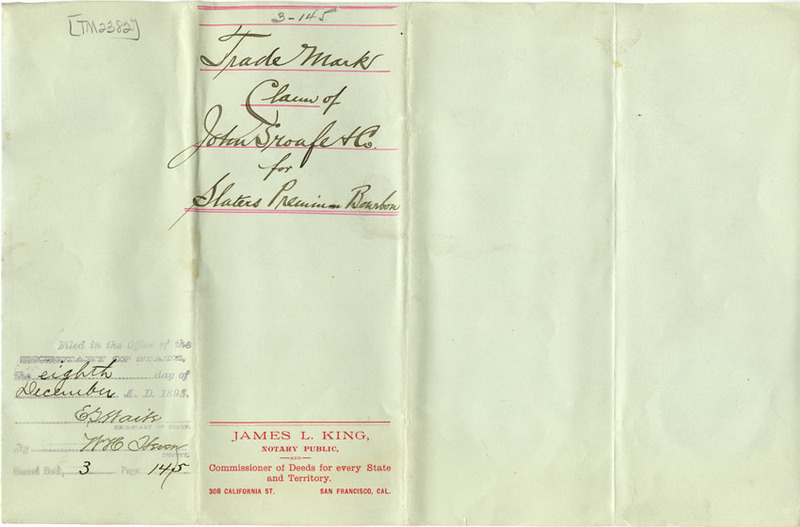 [TM2382]
3-145
Trade Mark
Claim of
John Sroufe & Co.
for
Slaters Premium Bourbon
Filed in the Office of the
SECRETARY OF STATE,
the eighth day of
December A. D. 1893.
E G Waite
SECRETARY OF STATE.
By W H
DEPUTY.
Book, 3 Page 145
JAMES L. KING,
NOTARY PUBLIC,
—AND—
Commissioner of Deeds for every State
and Territory.
308 CALIFORNIA ST. SAN FRANCISCO, CAL.